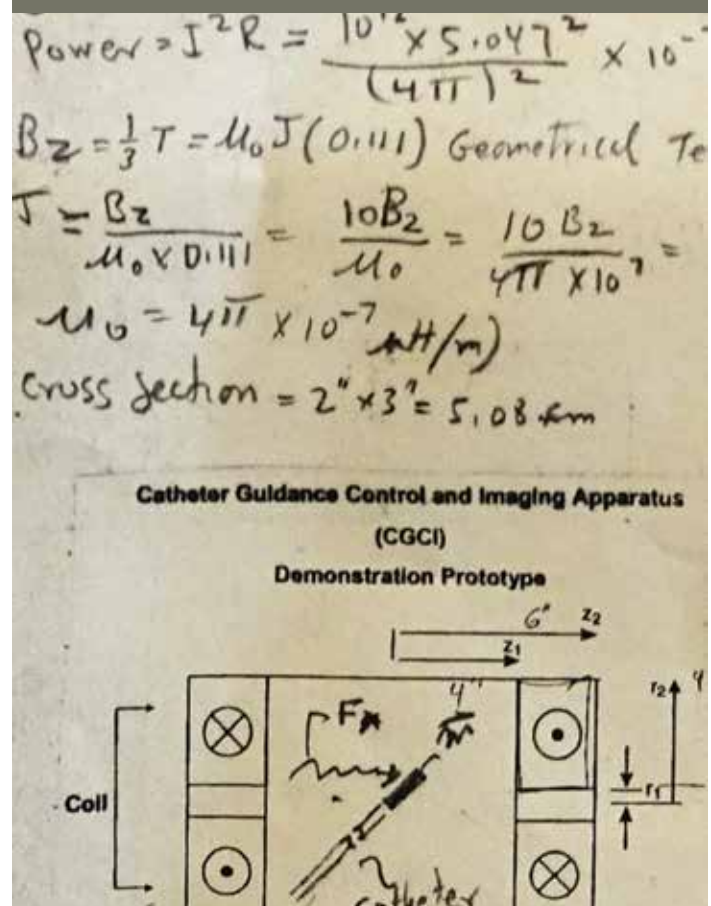 Power = I²R = 10¹² × 5.047² / (4π)² × 10⁻
Bz = 1/3 T = μ₀ J (0.111) Geometrical Te
J = Bz / μ₀ × 0.111 = 10Bz / μ₀ = 10 Bz / 4π × 10⁷ =
μ₀ = 4π × 10⁻⁷ H/m)
Cross Section = 2" × 3" = 5.08 cm
Catheter Guidance Control and Imaging Apparatus
(CGCI)
Demonstration Prototype
6" z2
z1
4" r2 4
F
r1
Coil
catheter